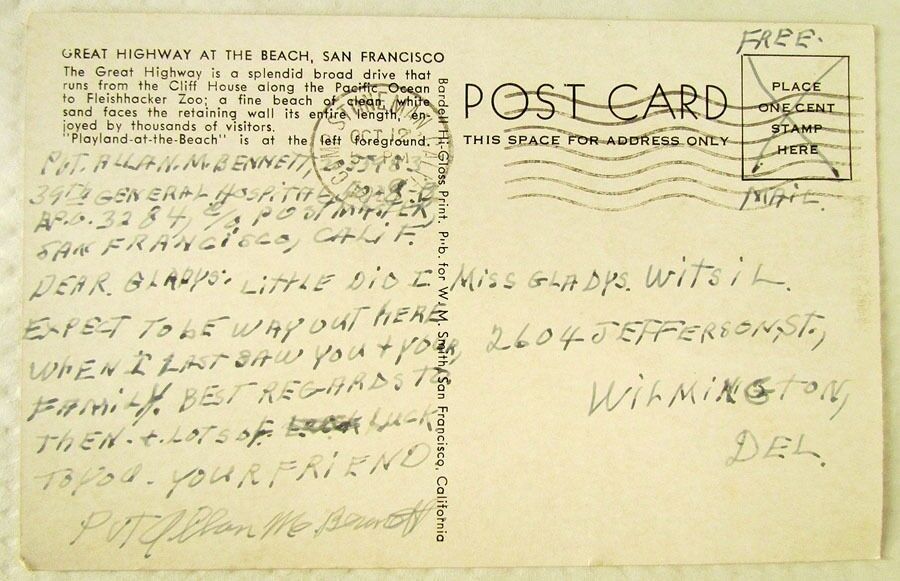 GREAT HIGHWAY AT THE BEACH, SAN FRANCISCO
The Great Highway is a splendid broad drive that
runs from the Cliff House along the Pacific Ocean
to Fleishhacker Zoo; a fine beach of clean, white
sand faces the retaining wall its entire length, en-
joyed by thousands of visitors.
"Playland-at-the-Beach" is at the left foreground.
PVT. ALLAN. M. BENNETT,
39TH GENERAL HOSPITAL
A.P.O. 3284, C/O POSTMASTER,
SAN FRANCISCO, CALIF.
DEAR. GLADYS: LITTLE DID I
EXPECT TO BE WAY OUT HERE
WHEN I LAST SAW YOU + YOUR
FAMILY. BEST REGARDS TO
THEM. + LOTS OF. LUCK
TO YOU. YOUR FRIEND
PVT Allan M. Bennett
Bardell Hi-Gloss Print. Pub. for W. M. Smith, San Francisco, California
OCT 12
PM
POST CARD
THIS SPACE FOR ADDRESS ONLY
FREE.
PLACE
ONE CENT
STAMP
HERE
MAIL.
MISS GLADYS. WITSIL.
2604 JEFFERSON, ST.,
WILMINGTON,
DEL.